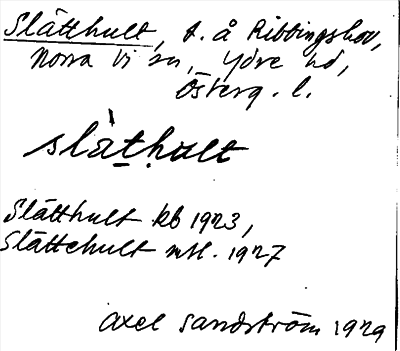 Slätthult, t. å Ribbingshov,
Norra Vi sn, Ydre hd,
Österg. l.
slàt̠ḥult
Slätthult kb 1923,
Slättehult mtl. 1927
Axel Sandström 1929